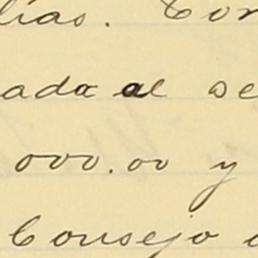 lías. Con
ada al se
000.00 y
Consejo d